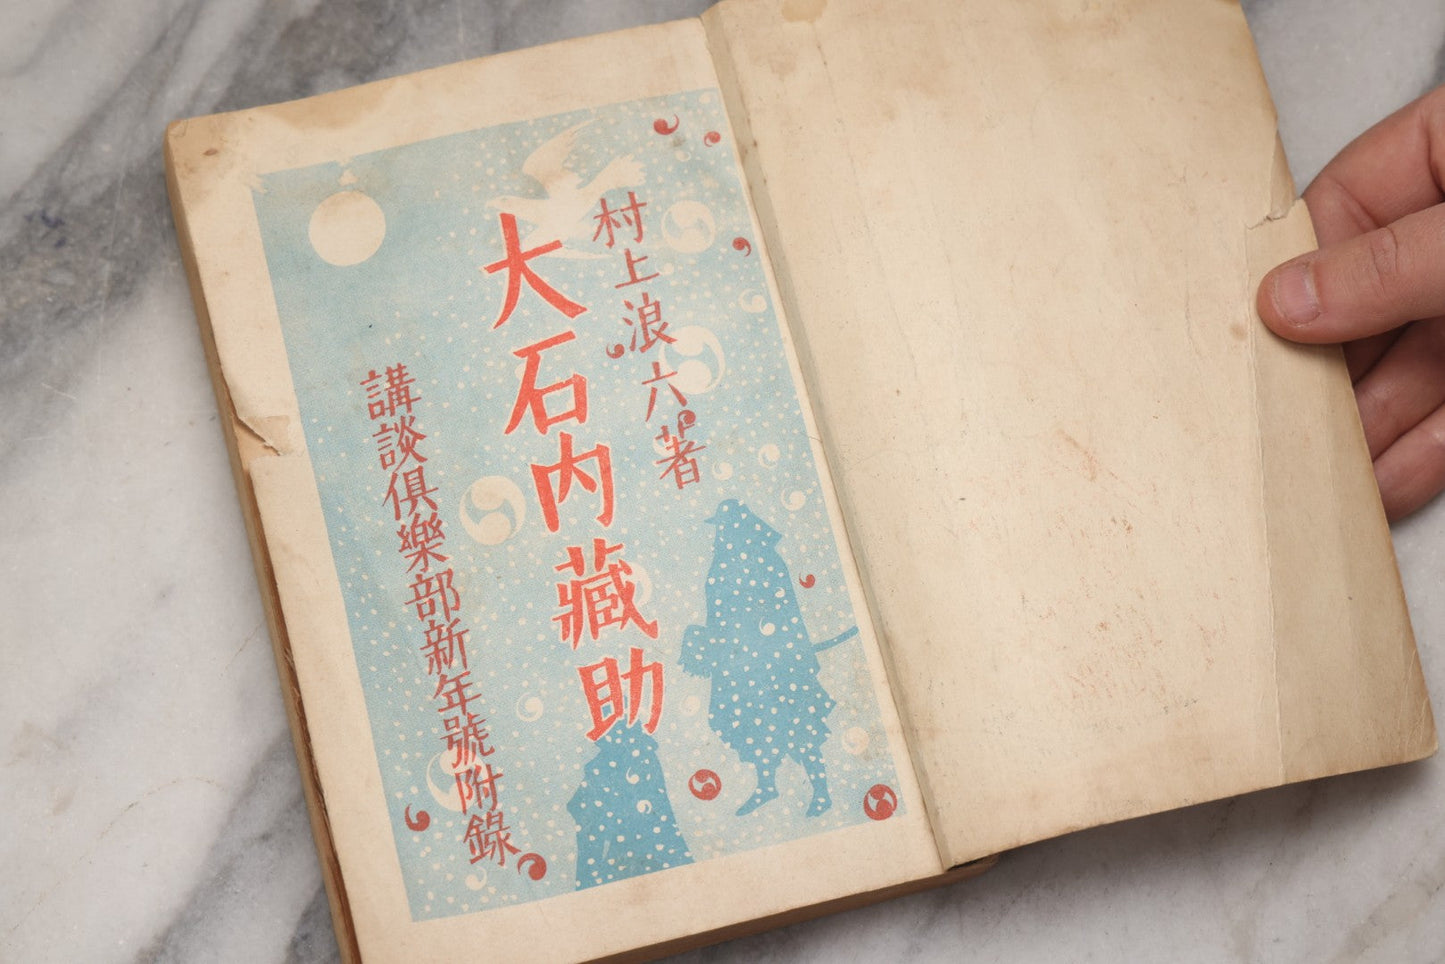 村上浪六著
大石内藏助
講談倶樂部新年號附錄